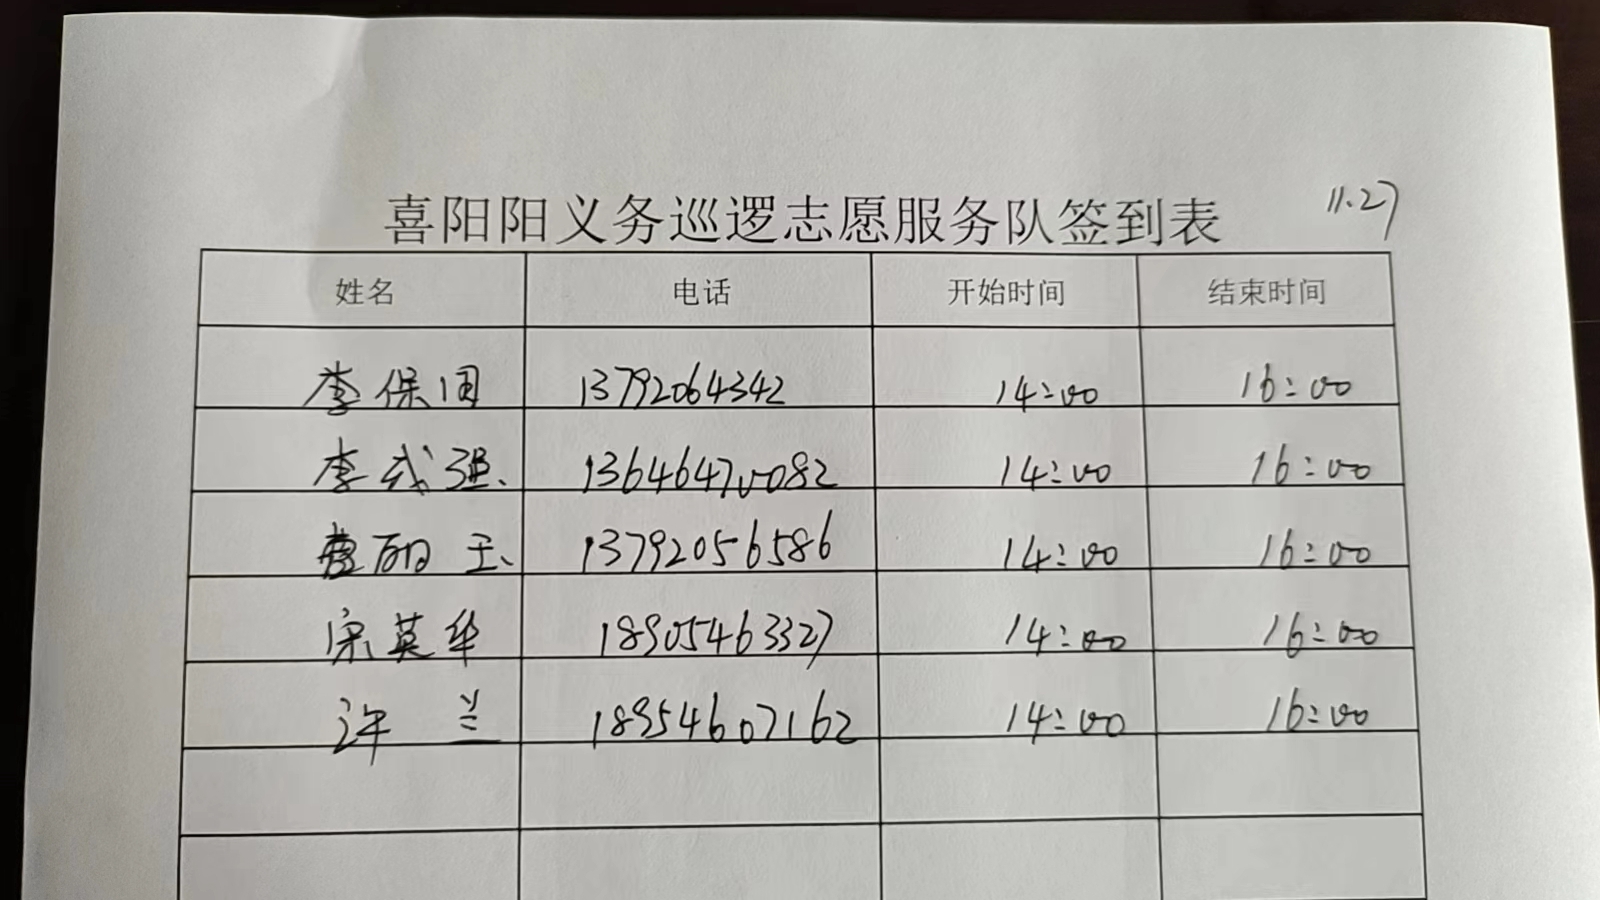 喜阳阳义务巡逻志愿服务队签到表 11.27
姓名 电话 开始时间 结束时间
李保国 13792064342 14:00 16:00
李成强 13646470082 14:00 16:00
曹丽玉 13792056586 14:00 16:00
宋英华 18905463327 14:00 16:00
许兰 18954607162 14:00 16:00